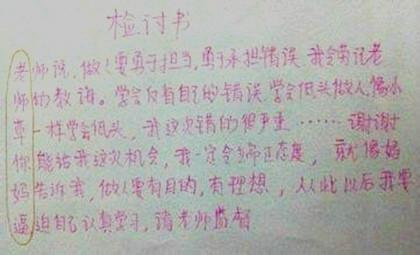 检讨书
老师说,做人要勇于担当,勇于承担错误,我会劳记老
师的教诲。学会反省自己的错误,学会低头做人,像小
草一样学会低头,我这次错的很严重……谢谢
你能给我这次机会,我一定会端正态度,就像妈
妈告诉我,做人要有目的,有理想,从此以后我要
逼迫自己认真学习,请老师监督